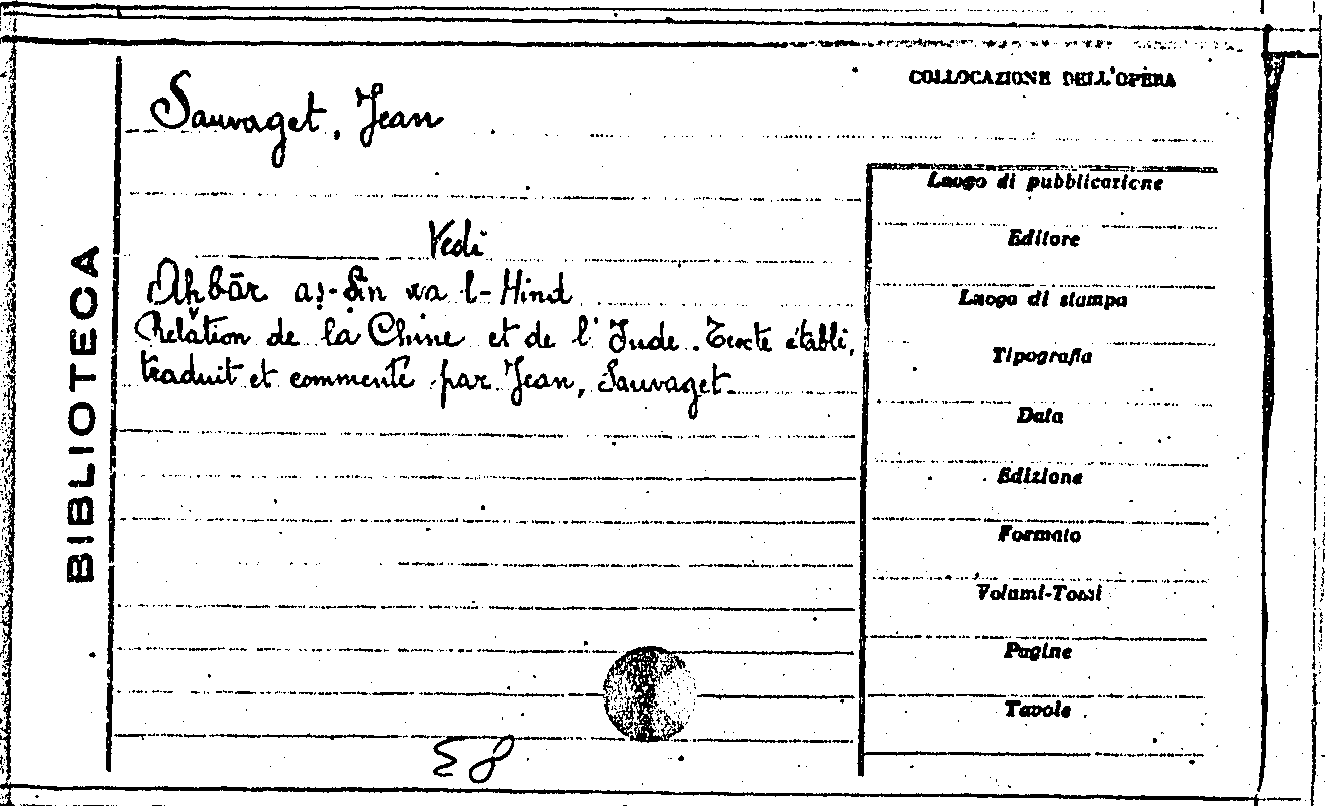 COLLOCAZIONE DELL'OPERA
Sauvaget, Jean
Vedi
Aḫbār aṣ-Ṣīn wa l-Hind
Relation de la Chine et de l'Inde. Texte établi,
traduit et commenté par Jean, Sauvaget
BIBLIOTECA
Luogo di pubblicazione
Editore
Luogo di stampa
Tipografia
Data
Edizione
Formato
Volumi-Tomi
Pagine
Tavole